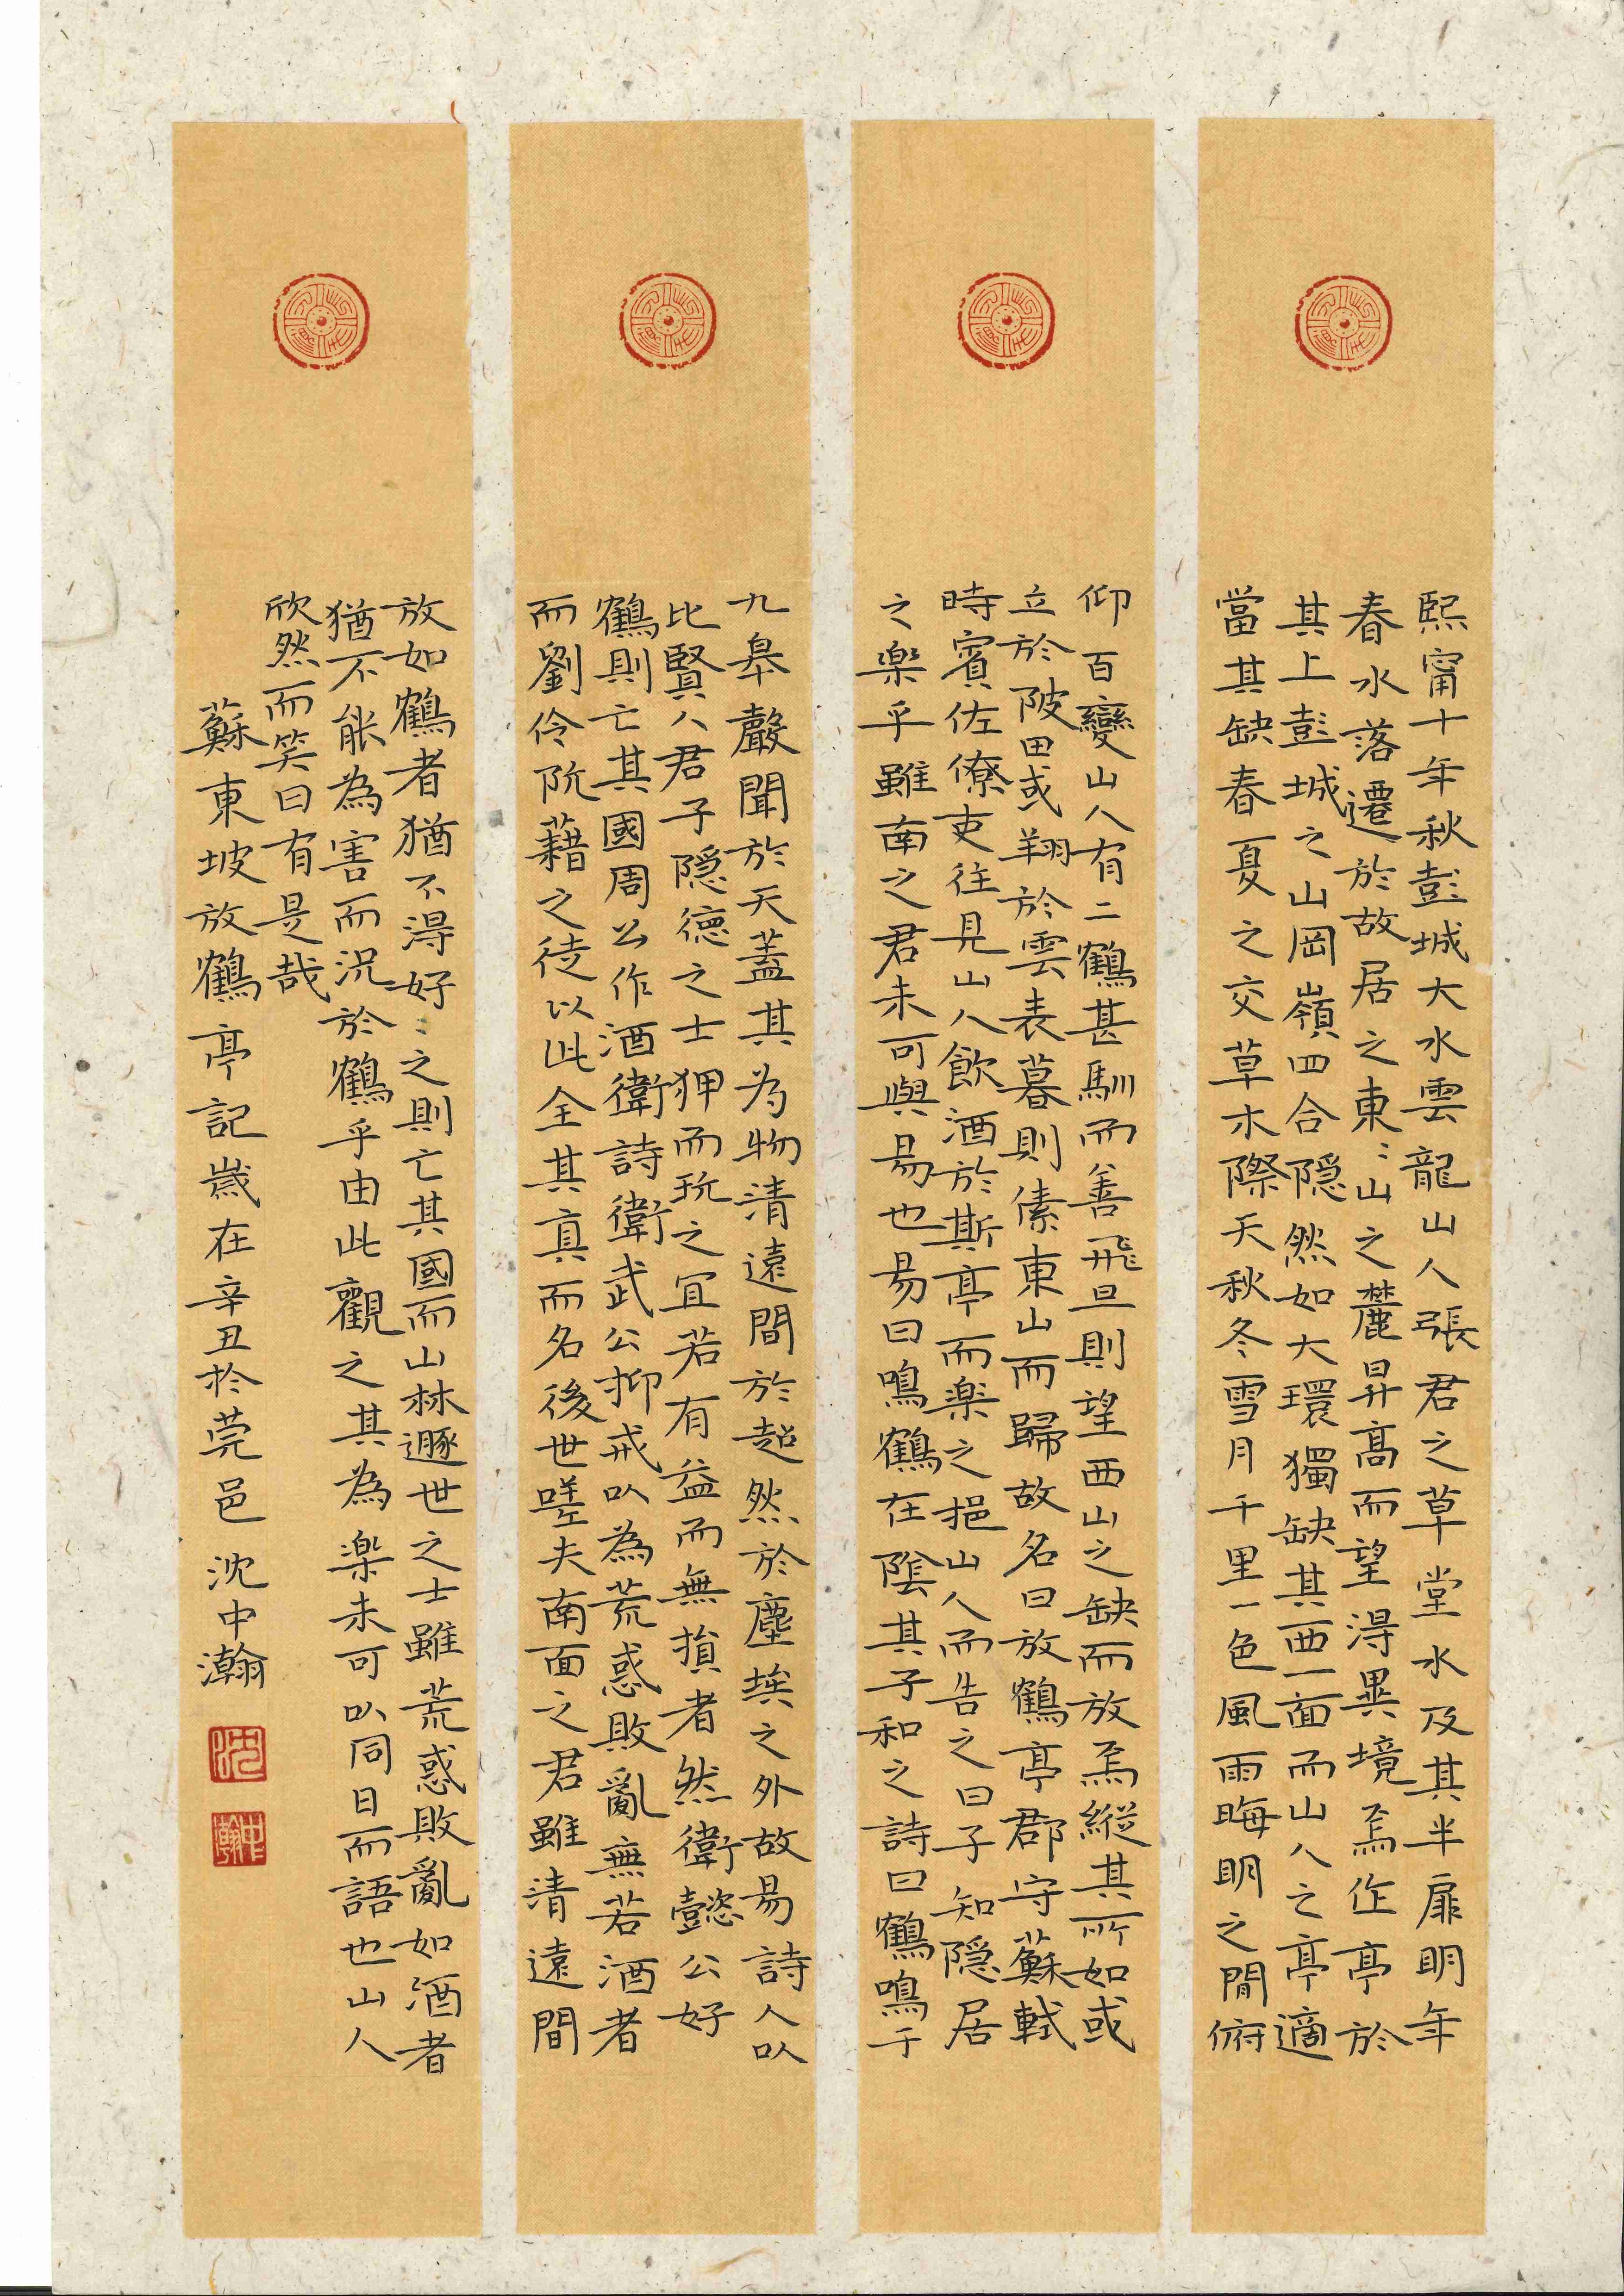 熙甯十年秋彭城大水雲龍山人張君之草堂水及其半扉明年
春水落遷於故居之東〻山之麓昇高而望得異境焉作亭於
其上彭城之山岡嶺四合隱然如大環獨缺其西一面而山人之亭適
當其缺春夏之交草木際天秋冬雪月千里一色風雨晦明之閒俯
仰百變山人有二鶴甚馴而善飛旦則望西山之缺而放焉縱其所如或
立於陂田或翔於雲表暮則傃東山而歸故名曰放鶴亭郡守蘇軾
時賓佐僚吏往見山人飲酒於斯亭而樂之挹山人而告之曰子知隱居
之樂乎雖南之君未可與易也易曰鳴鶴在陰其子和之詩曰鶴鳴于
九皋聲聞於天蓋其為物清遠閒於超然於塵埃之外故易詩人以
比賢人君子隱德之士狎而玩之宜若有益而無損者然衛懿公好
鶴則亡其國周公作酒衛詩衛武公抑戒以為荒惑敗亂無若酒者
而劉伶阮藉之徒以此全其真而名後世嗟夫南面之君雖清遠閒
放如鶴者猶不得好〻之則亡其國而山林遯世之士雖荒惑敗亂如酒者
猶不能為害而況於鶴乎由此觀之其為樂未可以同日而語也山人
欣然而笑曰有是哉
蘇東坡放鶴亭記歲在辛丑於莞邑 沈中瀚
沈
中瀚